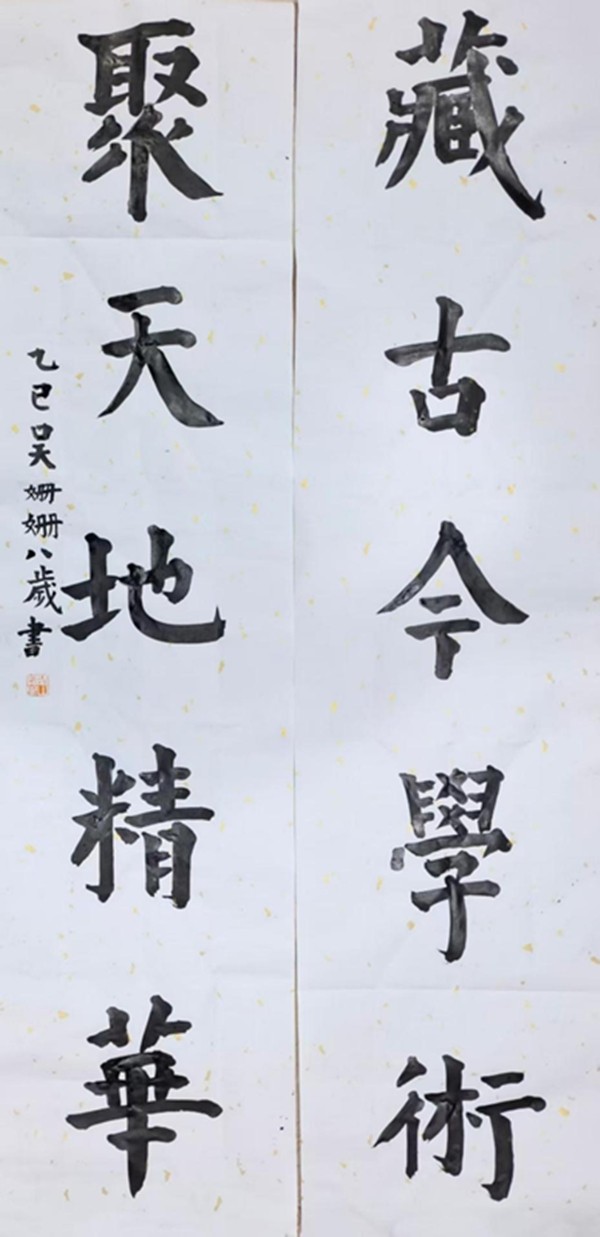 藏古今學術
聚天地精華
乙巳吴姗姗八歲書